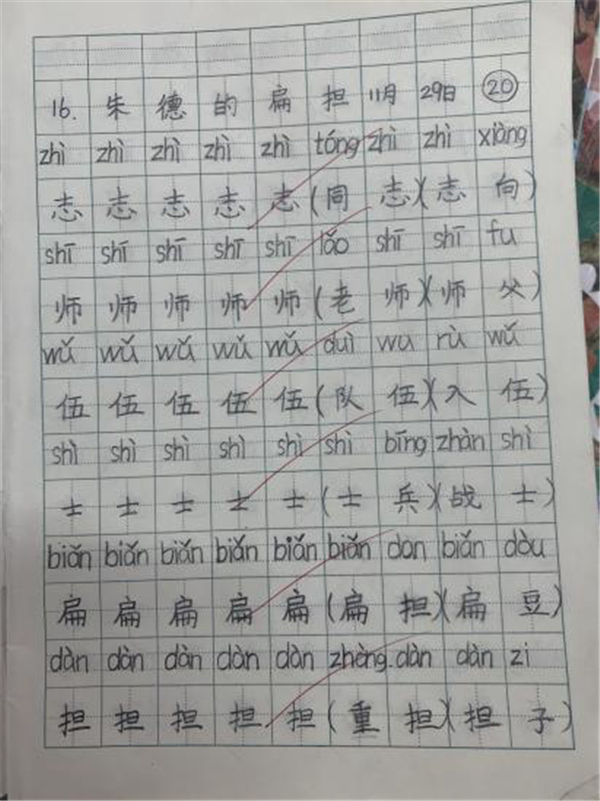 16. 朱德的扁担 11月29日 20
zhì zhì zhì zhì zhì tóng zhì zhì xiàng
志志志志志(同志)(志向)
shī shī shī shī shī lǎo shī shī fu
师师师师师(老师)(师父)
wǔ wǔ wǔ wǔ wǔ duì wu rù wǔ
伍伍伍伍伍(队伍)(入伍)
shì shì shì shì shì shì bīng zhàn shì
士士士士士(士兵)(战士)
biǎn biǎn biǎn biǎn biǎn biǎn dan biǎn dòu
扁扁扁扁扁(扁担)(扁豆)
dàn dàn dàn dàn dàn zhòng dàn dàn zi
担担担担担(重担)(担子)